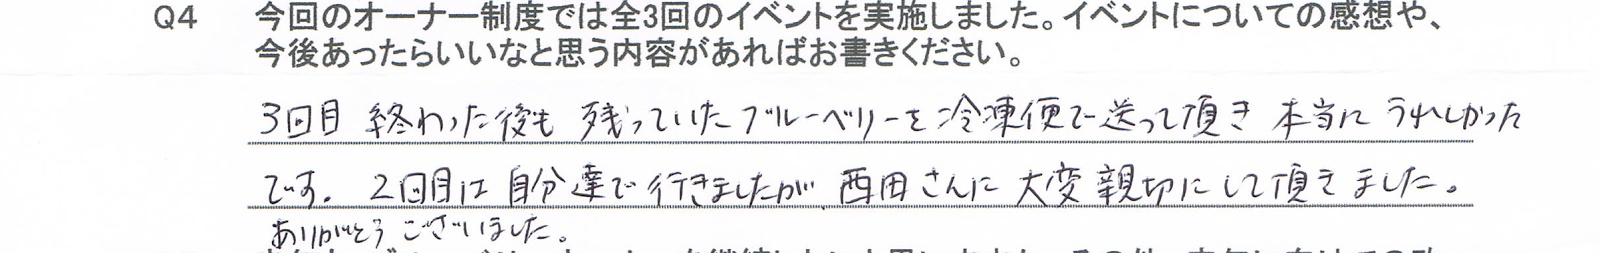 Q4 今回のオーナー制度では全3回のイベントを実施しました。イベントについての感想や、
今後あったらいいなと思う内容があればお書きください。
3回目 終わった後も 残っていたブルーベリーを冷凍便で送って頂き 本当に うれしかった
です。2回目は 自分達で 行きましたが、西田さんに 大変親切にして頂きました。
ありがとうございました。